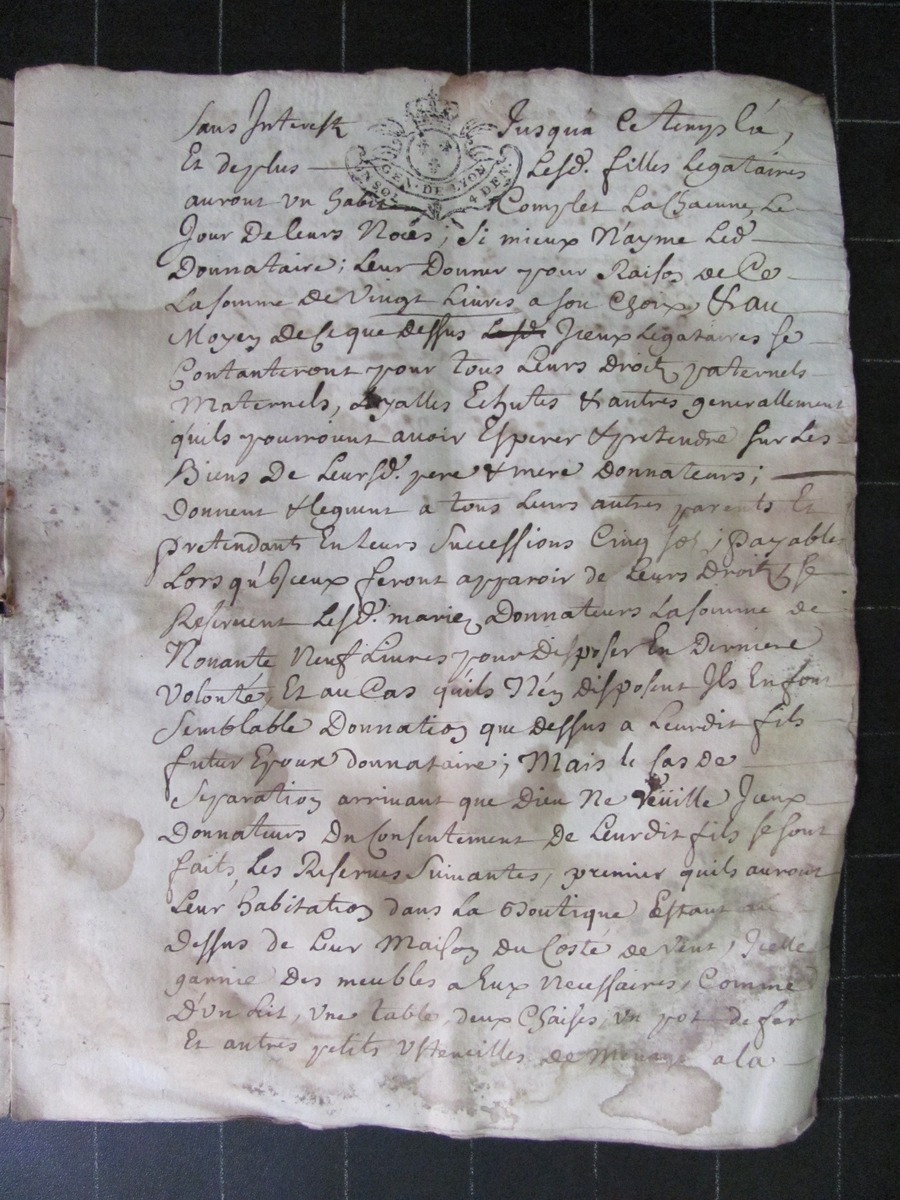 Sans Interest Jusqu'a Ce temps la,
Et de plus Lesd. filles Legataires
auront un habit Complet La Chacune, Le
GEN. DE LYON
UN SOL 4 DEN.
Jour De leurs Noces; Si mieux N'ayme Led.
Donnataire; Leur Donner pour Raison de Ce
La somme de Vingt Livres a son Choix, & au
Moyen de Ce que dessus Lesd. Jceux Legataires se
Contanteront pour tous Leurs Droits paternels
Maternels, Loyalles Echutes & autres generallement
qu'ils pourroient avoir Esperer & pretendre sur Les
Biens De Leursd. pere & mere Donnateurs;
Donnent & leguent a tous Leurs autres parents Et
pretendants En leurs Successions Cinq sols; payables
Lors qu'Jceux feront apparoir de Leurs Droits, se
Reservent Lesd. mariez Donnateurs La somme de
Nonante Neuf Livres pour Disposer En Derniere
Volonté, Et au Cas qu'ils N'en disposent Jls En font
Semblable Donnation que dessus a Leurdit fils
futur Epoux donnataire; Mais le Cas de
Separation arrivant que Dieu Ne Veüille Jceux
Donnateurs Du Consentement De Leurdit fils se sont
faits Les Reserves Suivantes, premier qu'ils auront
Leur habitation dans La Boutique Estant au
Dessus de Leur Maison Du Costé de Vent, Jcelle
garnie Des meubles a Eux Necessaires, Comme
D'un Lit, une table, deux Chaises, un pot de fer
Et autres petits Ustencilles de Menage a la